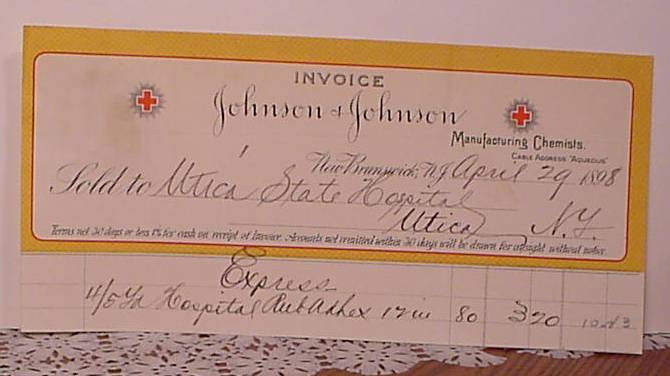 INVOICE
Johnson & Johnson
Manufacturing Chemists.
CABLE ADDRESS "AQUEOUS"
New Brunswick, N.J. April 29 1898
Sold to Utica State Hospital
Utica N.Y.
Terms net 30 days or less 1% for cash on receipt of Invoice. Accounts not remitted within 30 days will be drawn for at sight without notice.
Express
4/5 Yd Hospital Rub Adhex 12 in 80 3 20